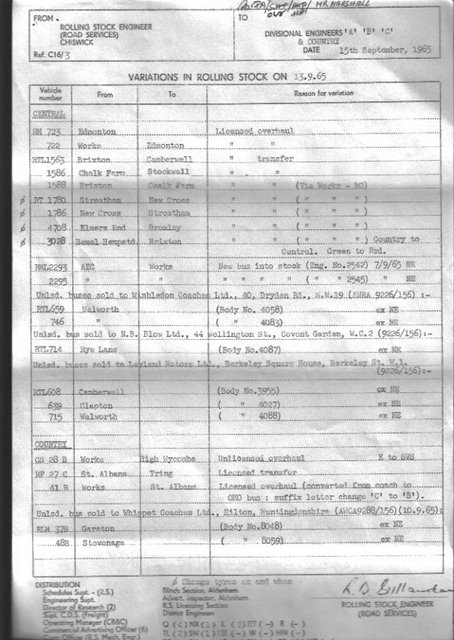 FROM
ROLLING STOCK ENGINEER
(ROAD SERVICES)
CHISWICK
Ref. C16/3
MR MARSHALL
TO
DIVISIONAL ENGINEERS 'A' 'B' 'C'
& COUNTRY
DATE 15th September, 1965
VARIATIONS IN ROLLING STOCK ON 13.9.65
Vehicle number From To Reason for variation
CENTRAL
RM 723 Edmonton Licensed overhaul
722 Works Edmonton " "
RTL1563 Brixton Camberwell " transfer
1586 Chalk Farm Stockwell " "
1588 Brixton Chalk Farm " " (Via Works - BO)
ø RT 1780 Streatham New Cross " " ( " " " )
ø 1786 New Cross Streatham " " ( " " " )
ø 4708 Elmers End Bromley " " ( " " " )
ø 3028 Hemel Hempstd. Brixton " " ( " " " ) Country to
Central. Green to Red.
RML2293 AEC Works New bus into stock (Eng. No.2542) 7/9/65 NE
2295 " " " " " " ( " " 2545) " NE
Unlsd. buses sold to Wimbledon Coaches Ltd., 40, Dryden Rd., S.W.19 (AWRA 9226/156) :-
RTL659 Walworth (Body No.4058) ex NE
746 " ( " 4083) ex NE
Unlsd. bus sold to N.S. Blow Ltd., 44 Wellington St., Covent Garden, W.C.2 (9226/156):-
RTL714 Rye Lane (Body No.4087) ex NE
Unlsd. buses sold to Leyland Motors Ltd., Berkeley Square House, Berkeley St. W.1.
(9226/156):-
RTL608 Camberwell (Body No.3955) ex NE
639 Clapton ( " 4027) ex NE
715 Walworth ( " 4088) ex NE
COUNTRY
GS 28 B Works High Wycombe Unlicensed overhaul E to SWS
RF 27 C St. Albans Tring Licensed transfer
41 B Works St. Albans Licensed overhaul (converted from coach to
OMO bus : suffix letter change 'C' to 'B').
Unlsd. bus sold to Whippet Coaches Ltd., Hilton, Huntingdonshire (AWCA9288/156)(10.9.65):
RLH 37B Garston (Body No.8048) ex NE
48B Stevenage ( " 8059) ex NE
DISTRIBUTION
Schedules Supt. - (R.S.)
Engineering Supt.
Director of Research (2)
Supt. C.D.S. (Freight)
Operating Manager (CB&C)
Commercial Advertising Officer (6)
(R.S. Mech. Engr.)
ø Change tyres as and when
Blinds Section, Aldenham
Advert. Inspector, Aldenham
R.S. Licensing Section
District Engineers
ROLLING STOCK ENGINEER
(ROAD SERVICES)